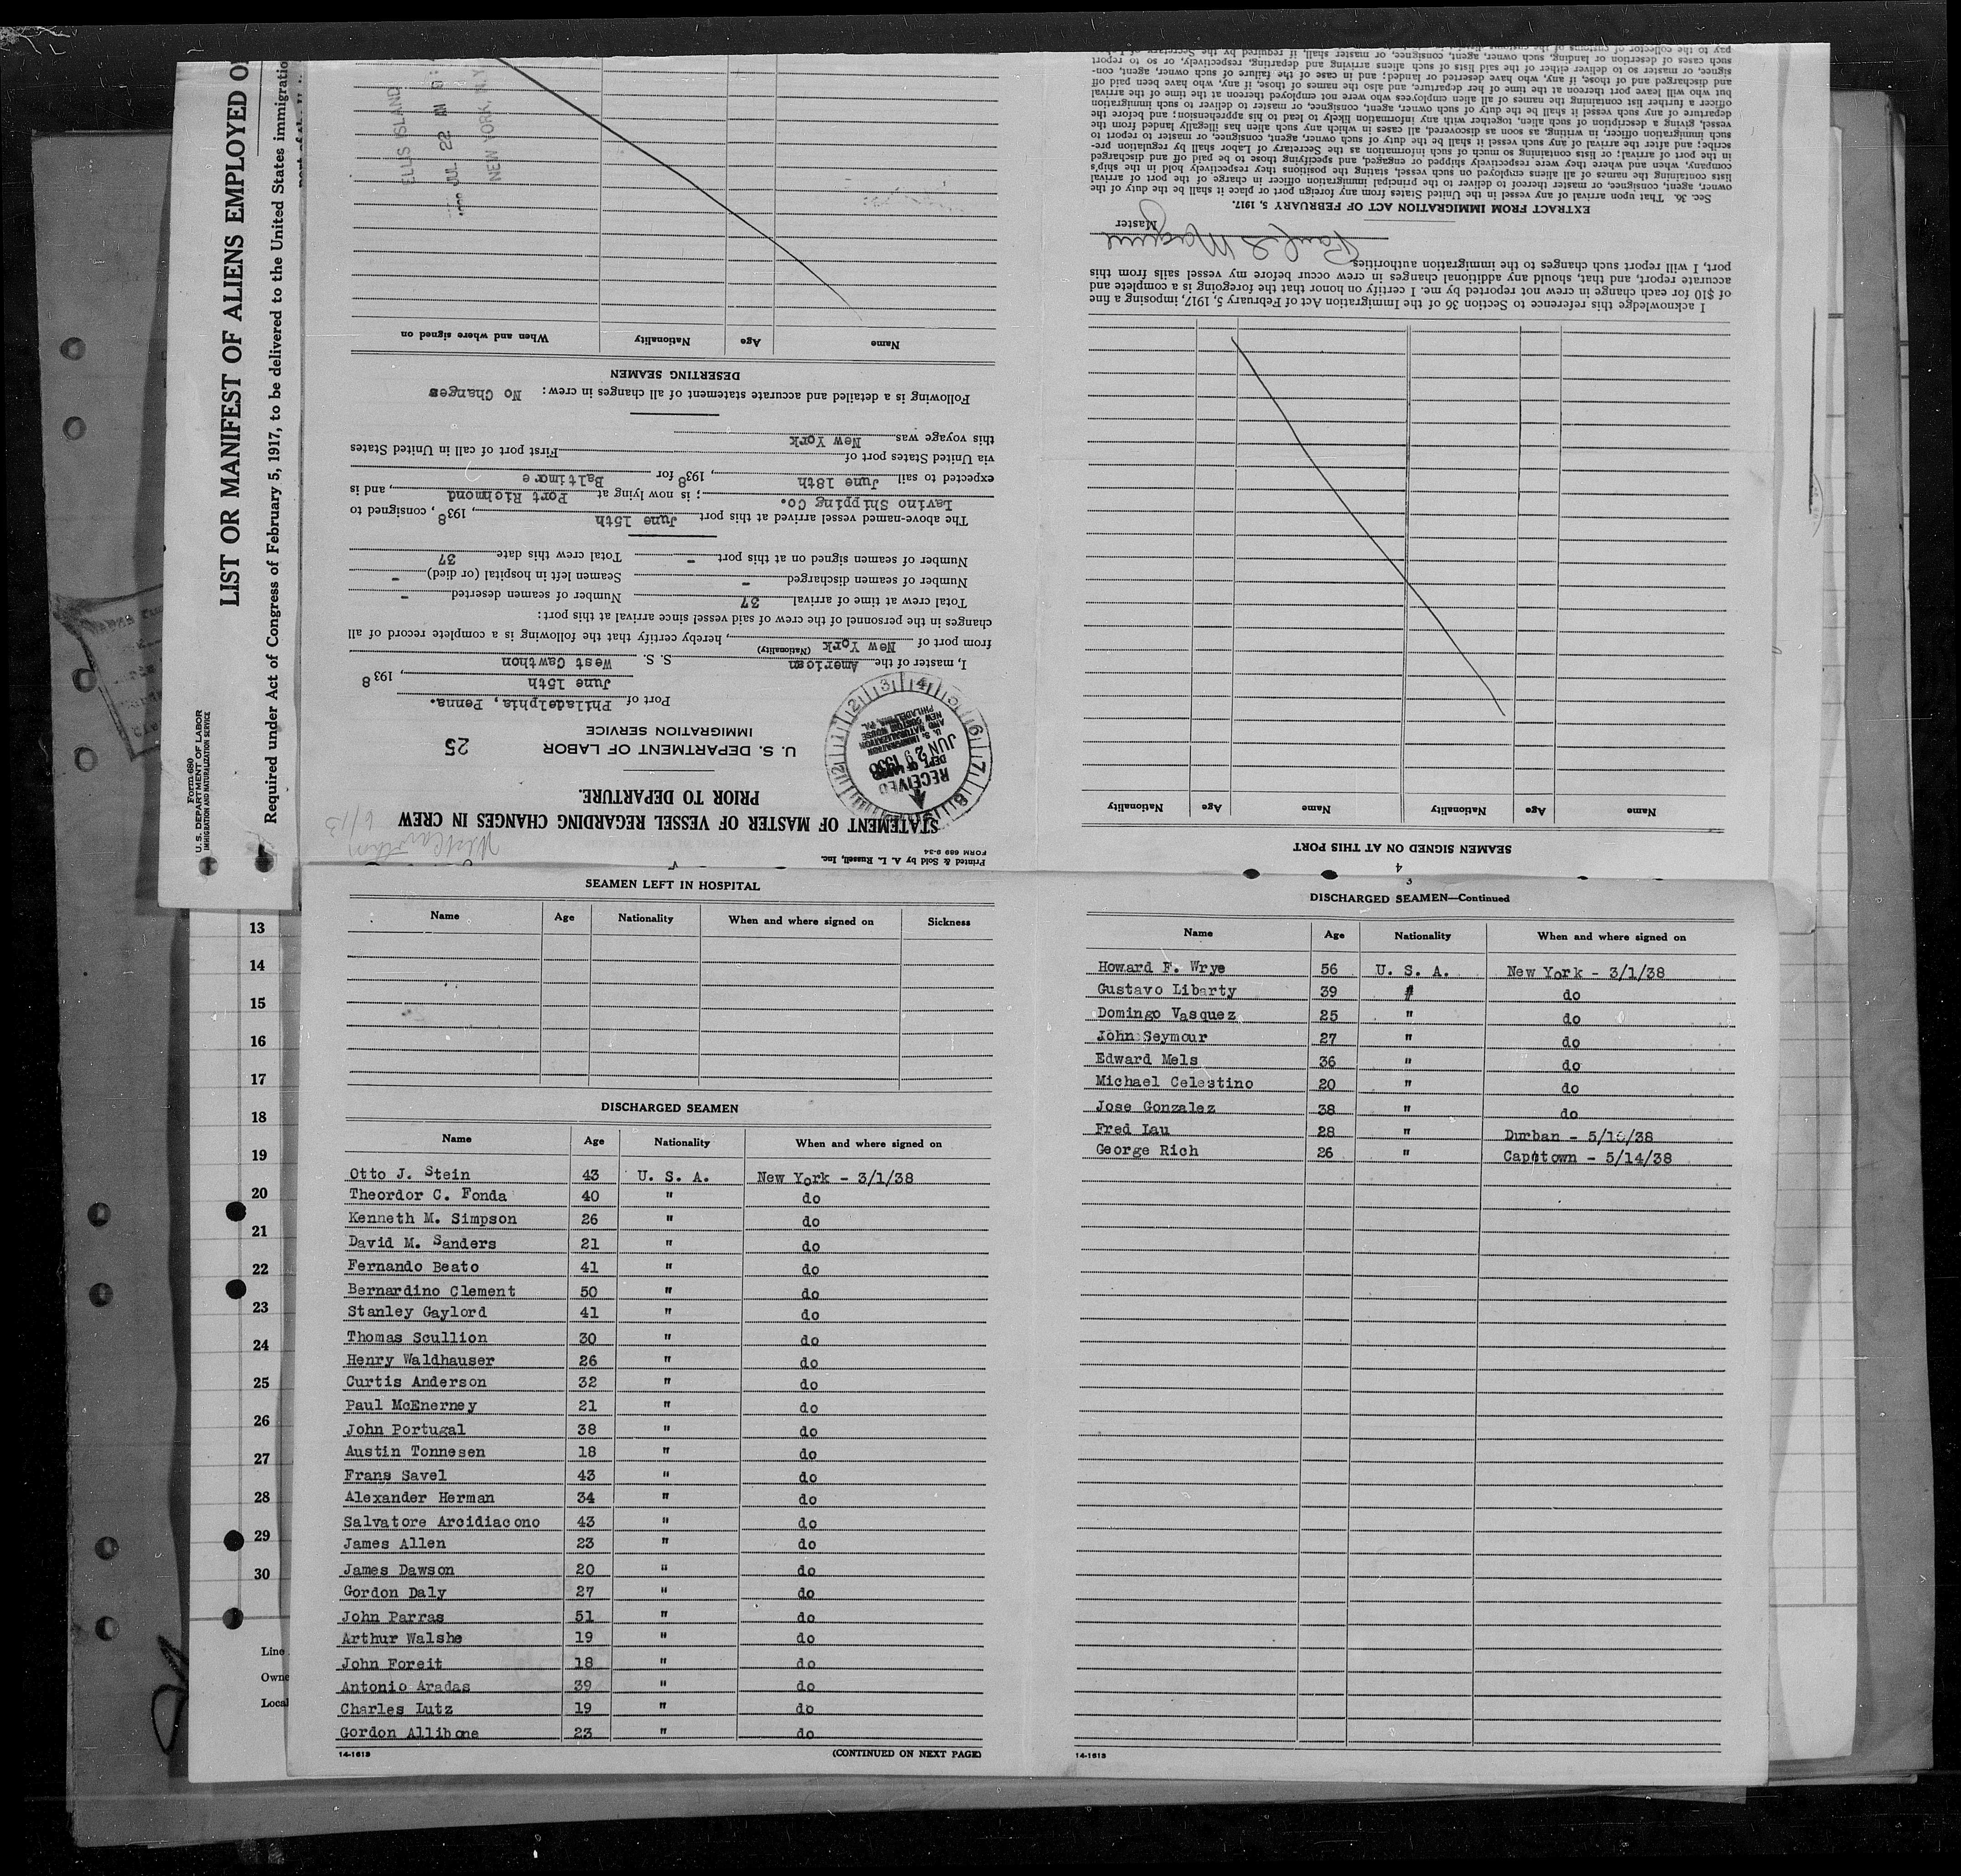 Form 680
U. S. DEPARTMENT OF LABOR
IMMIGRATION AND NATURALIZATION SERVICE
LIST OR MANIFEST OF ALIENS EMPLOYED O
Required under Act of Congress of February 5, 1917, to be delivered to the United States immigratio
Printed & Sold by A. L. Russell, Inc.
FORM 689 9-34
West Cawthon
6/13
STATEMENT OF MASTER OF VESSEL REGARDING CHANGES IN CREW
PRIOR TO DEPARTURE.
U. S. DEPARTMENT OF LABOR
IMMIGRATION SERVICE
25
RECEIVED
DEPT OF LABOR
JUN 29 1938
U. S. IMMIGRATION
AND NATURALIZATION
NEW CUSTOM HOUSE
PHILADELPHIA, PA.
Port of Philadelphia, Penna.
June 15th, 1938
I, master of the American S. S. West Cawthon
(Nationality)
from port of New York, hereby certify that the following is a complete record of all
changes in the personnel of the crew of said vessel since arrival at this port:
Total crew at time of arrival 37 Number of seamen deserted -
Number of seamen discharged - Seamen left in hospital (or died) -
Number of seamen signed on at this port - Total crew this date 37
The above-named vessel arrived at this port June 15th, 1938, consigned to
Lavino Shipping Co.; is now lying at Port Richmond, and is
expected to sail June 18th, 1938 for Baltimore
via United States port of First port of call in United States
this voyage was New York
Following is a detailed and accurate statement of all changes in crew: No Changes
DESERTING SEAMEN
Name Age Nationality When and where signed on
ELLIS ISLAND
JUL 22 AM
NEW YORK, N.Y.
4
SEAMEN SIGNED ON AT THIS PORT
Name Age Nationality Name Age Nationality
I acknowledge this reference to Section 36 of the Immigration Act of February 5, 1917, imposing a fine
of $10 for each change in crew not reported by me. I certify on honor that the foregoing is a complete and
accurate report, and that, should any additional changes in crew occur before my vessel sails from this
port, I will report such changes to the immigration authorities.
Master
EXTRACT FROM IMMIGRATION ACT OF FEBRUARY 5, 1917.
Sec. 36. That upon arrival of any vessel in the United States from any foreign port or place it shall be the duty of the
owner, agent, consignee, or master thereof to deliver to the principal immigration officer in charge of the port of arrival
lists containing the names of all aliens employed on such vessel, stating the positions they respectively hold in the ship's
company, when and where they were respectively shipped or engaged, and specifying those to be paid off and discharged
in the port of arrival; or lists containing so much of such information as the Secretary of Labor shall by regulation pre-
scribe; and after the arrival of any such vessel it shall be the duty of such owner, agent, consignee, or master to report to
such immigration officer, in writing, as soon as discovered, all cases in which any such alien has illegally landed from the
vessel, giving a description of such alien, together with any information likely to lead to his apprehension; and before the
departure of any such vessel it shall be the duty of such owner, agent, consignee, or master to deliver to such immigration
officer a further list containing the names of all alien employees who were not employed thereon at the time of the arrival
but who will leave port thereon at the time of her departure, and also the names of those, if any, who have been paid off
and discharged and of those, if any, who have deserted or landed; and in case of the failure of such owner, agent, con-
signee, or master so to deliver either of the said lists of such aliens arriving and departing, respectively, or so to report
such cases of desertion or landing, such owner, agent, consignee, or master shall, if required by the Secretary of
pay to the collector of customs of the customs district
SEAMEN LEFT IN HOSPITAL
Name Age Nationality When and where signed on Sickness
DISCHARGED SEAMEN
Name Age Nationality When and where signed on
Otto J. Stein 43 U. S. A. New York - 3/1/38
Theordor C. Fonda 40 " do
Kenneth M. Simpson 26 " do
David M. Sanders 21 " do
Fernando Beato 41 " do
Bernardino Clement 50 " do
Stanley Gaylord 41 " do
Thomas Scullion 30 " do
Henry Waldhauser 26 " do
Curtis Anderson 32 " do
Paul McEnerney 21 " do
John Portugal 38 " do
Austin Tonnesen 18 " do
Frans Savel 43 " do
Alexander Herman 34 " do
Salvatore Arcidiacono 43 " do
James Allen 23 " do
James Dawson 20 " do
Gordon Daly 27 " do
John Parras 51 " do
Arthur Walshe 19 " do
John Foreit 18 " do
Antonio Aradas 39 " do
Charles Lutz 19 " do
Gordon Allibone 23 " do
14-1613 (CONTINUED ON NEXT PAGE)
3
DISCHARGED SEAMEN—Continued
Name Age Nationality When and where signed on
Howard F. Wrye 56 U. S. A. New York - 3/1/38
Gustavo Libarty 39 " do
Domingo Vasquez 25 " do
John Seymour 27 " do
Edward Mels 36 " do
Michael Celestino 20 " do
Jose Gonzalez 38 " do
Fred Lau 28 " Durban - 5/16/38
George Rich 26 " Capetown - 5/14/38
14-1613
13
14
15
16
17
18
19
20
21
22
23
24
25
26
27
28
29
30
Line
Owne
Local